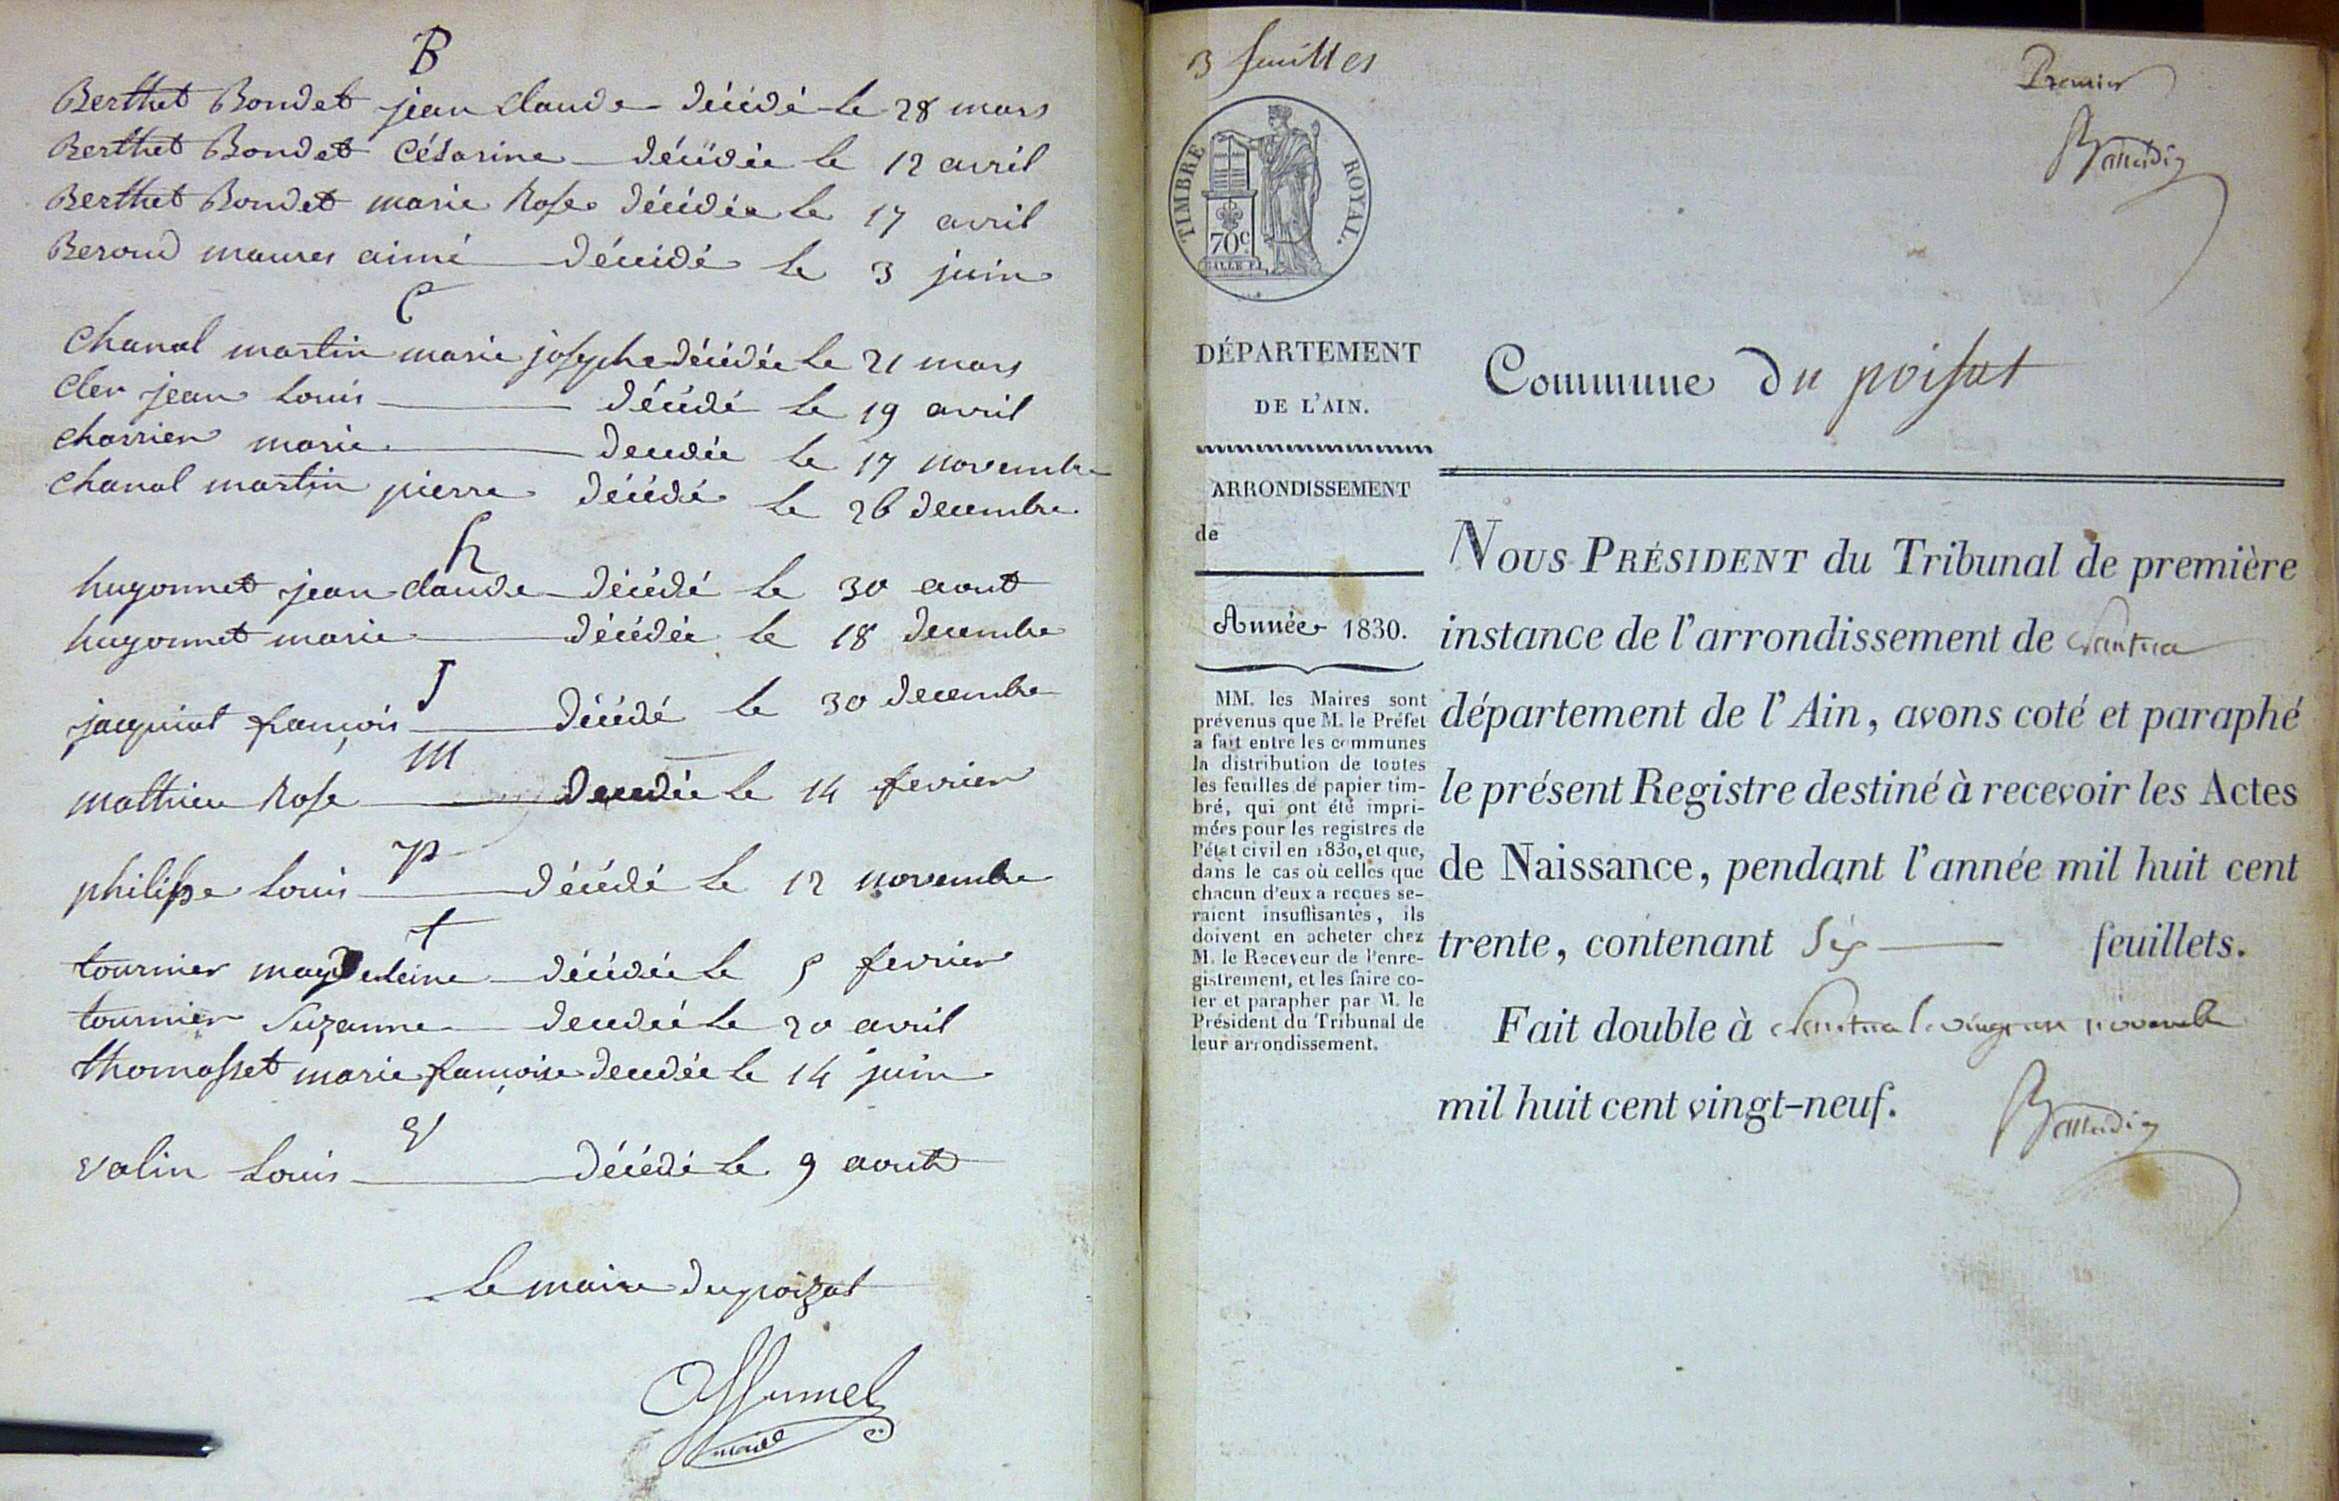 B
Berthet Bondet jean claude décédé le 28 mars
Berthet Bondet Césarine décédée le 12 avril
Berthet Bondet marie Rose décédée le 17 avril
Beroud aimé décédé le 3 juin
C
chanal martin marie josephe décédée le 21 mars
cler jean Louis décédé le 19 avril
charrier marie decedée le 17 novembre
chanal martin pierre décédé le 26 decembre
h
hugonnet jean claude décédé le 30 aout
hugonnet marie décédée le 18 decembre
J
jacquiot françois décédé le 30 decembre
m
mathieu Rose decedée le 14 fevrier
p
philippe Louis décédé le 12 novembre
t
tournier magdeleine décédée le 5 fevrier
tournier Suzanne decedée le 20 avril
thomasset marie françoise decedée le 14 juin
v
valin Louis décédé le 9 aout
Le maire du poizat
maire
3 feuilles
Premier
TIMBRE ROYAL.
70c
DÉPARTEMENT
DE L'AIN.
ARRONDISSEMENT
de
Année 1830.
MM. les Maires sont
prévenus que M. le Préfet
a fait entre les communes
la distribution de toutes
les feuilles de papier tim-
bré, qui ont été impri-
mées pour les registres de
l'état civil en 1830, et que,
dans le cas où celles que
chacun d'eux a reçues se-
raient insuffisantes, ils
doivent en acheter chez
M. le Receveur de l'enre-
gistrement, et les faire co-
ter et parapher par M. le
Président du Tribunal de
leur arrondissement.
Commune du poisat
NOUS PRÉSIDENT du Tribunal de première
instance de l'arrondissement de Nantua
département de l'Ain, avons coté et paraphé
le présent Registre destiné à recevoir les Actes
de Naissance, pendant l'année mil huit cent
trente, contenant Six feuillets.
Fait double à Nantua le novembre
mil huit cent vingt-neuf.